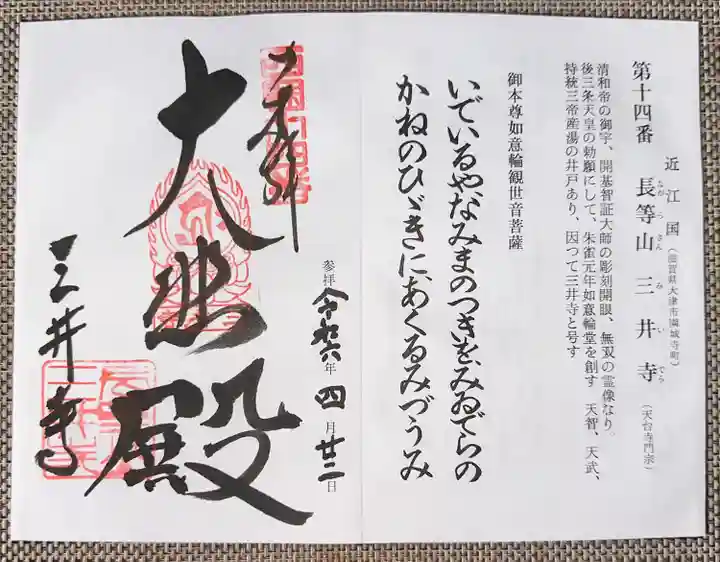 近江国(滋賀県大津市園城寺町)
第十四番 長等山 三井寺(天台寺門宗)
ながらさん みいでら
清和帝の御宇、開基智証大師の彫刻開眼、無双の霊像なり。
後三条天皇の勅願にして、朱雀元年如意輪堂を創す 天智、天武、
持統三帝産湯の井戸あり、因つて三井寺と号す
御本尊如意輪観世音菩薩
いでいるやなみまのつきをみゐでらの
かねのひゞきにあくるみづうみ
奉拝
大悲殿
三井寺
参拝 令和六年 四月廿二日
西国十四番